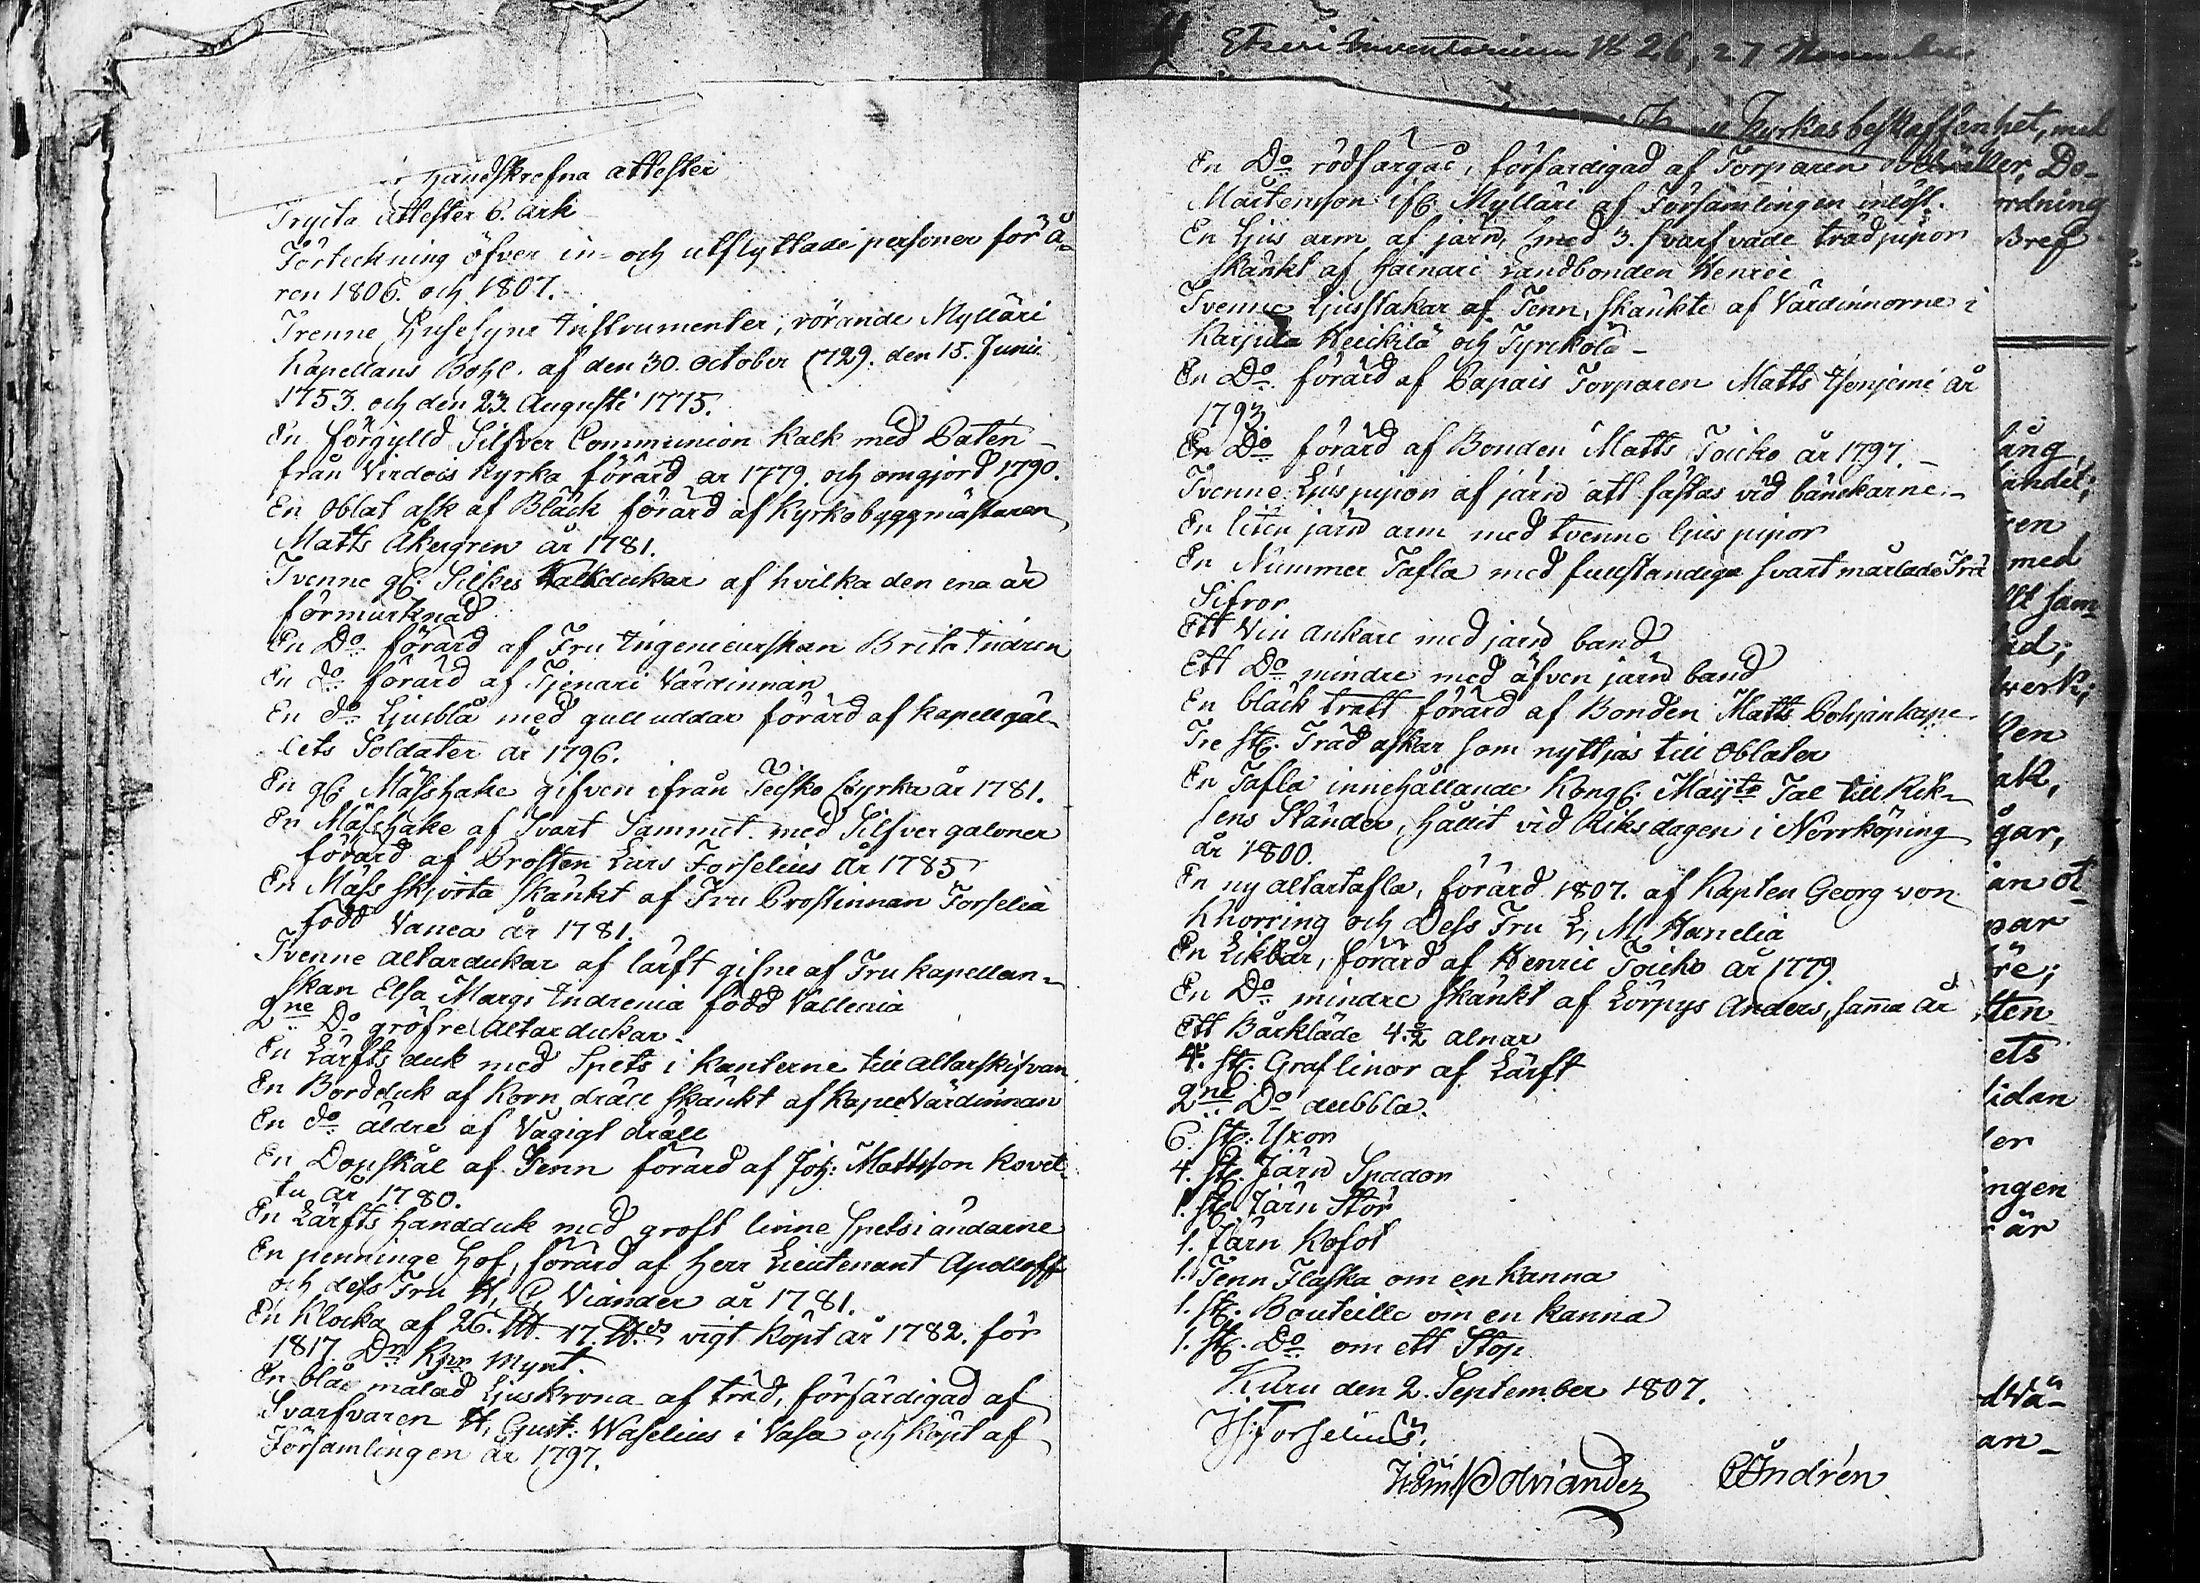 Handskrefna attester
Tryckta attester 6. ark
Förteckning öfver in- och utflyttade personer för å-
ren 1806. och 1807.
Trenne Husesyns Instrumenter, rörande Mylläri
Kapellans Bohl. af den 30. October 1729. den 15. Junii
1753. och den 23. Augusti 1775.
En förgylld Silfver Communion Kalk med Paten
från Virdois Kyrka förärd år 1779. och omgjord 1790.
En Oblat ask af Bläck förärd af Kyrkobyggmästaren
Matts Åkergren år 1781.
Tvenne gl: Silkes Kalkdukar af hvilka den ena är
förmurknad
En Do förärd af Fru Ingenieurskan Brita Indren
En do förärd af Tjenari Värdinnan
En do Ljusblå med gull uddar förärd af Kapellgäl-
lets Soldater år 1796.
En gl: Mässhake gifven ifrån Teisko Kyrka år 1781.
En Mässhake af Svart Sammet med Silfver galoner
förärd af Prosten Lars Forselius år 1785
En Mäss skjorta skänkt af Fru Prostinnan Forselia
född Vanea år 1781.
Tvenne altardukar af lärft gifne af Fru Kapellan-
skan Elsa Marg: Indrenia född Vallenia
2ne Do gröfre Altardukar.
En Lärfts duk med Spets i kanterne till Altarskifvan
En Bordduk af Korn dräll skänkt af Kapell Värdinnan
En do äldre af Vägigt dräll
En Dopskål af Tenn förärd af Joh: Mattsson Kovet-
tu år 1780.
En Lärfts handduk med groft linne Spets i ändarne
En penninge Hof, förärd af Herr Lieutenant Apolloff
och dess Fru H. C. Viander år 1781.
En Klocka af 26. 17. vigt köpt år 1782. för
1817. Dr Kpr Mynt.
En blå målad Ljuskrona af träd, förfärdigad af
Svarfvaren H, Gust: Waselius i Vasa och köpt af
Församlingen år 1797.
Inventarium 26, 27 November
Kyrkas beskaffenhet, med
En Do rödfärgad, förfärdigad af Torparen
Mårtensson Mylläri af Församlingen inlöst.
En Ljus arm af järn, med 3. svarfvade träd pipor
skänkt af Hainari Landbonden Henric
Tvenne Ljusstakar af Tenn, skänkte af Värdinnorne i
Karjula Heickilä och Tyrckölä
En Do förärd af Papais Torparen Matts år
1793.
En Do förärd af Bonden Matts Toicko år 1797.
Tvenne Ljus pipor af järn att fästas vid bänckarne
En liten järn arm med tvenne ljus pipor
En Nummer Tafla med fullständiga svart målade Trä
Sifror
Ett Vin ankare med järn band
Ett Do mindre med äfven järn band
En bläck tratt förärd af Bonden Matts Pohjankape
Tre st: Träd askar som nyttjas till Oblater
En Tafla innehållande Kongl: Maijts Tal till Rik-
sens Ständer, hållit vid Riksdagen i Norrköping
år 1800.
En ny altartafla, förärd 1807. af Kapten Georg von
Knorring och Dess Fru E, M, Hanelia
En Likbår, förärd af Henric Toicko år 1779
En Do mindre skänkt af Lörpys Anders, samma år
Ett Bårkläde 4 1/2 alnar
4. st: Graflinor af Lärft
2ne Do dubbla.
6. st: Yxor
4. st: Järn Spador
1. st: Järn Stör
1. Järn Kofot
1. Tenn Flaska om en Kanna
1. st: Bouteille om en kanna
1. st: Do om ett Stop
Kuru den 2. September 1807.
Forselius.
Indrén
rdning
Bref
med
sam-
verk;
ten
ets
er
ngen
är
an-